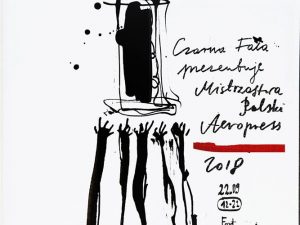 Czarna Fala
prezentuje
Mistrzostwa
Polski
Aeropress
2018
22.09
12-22
Fort